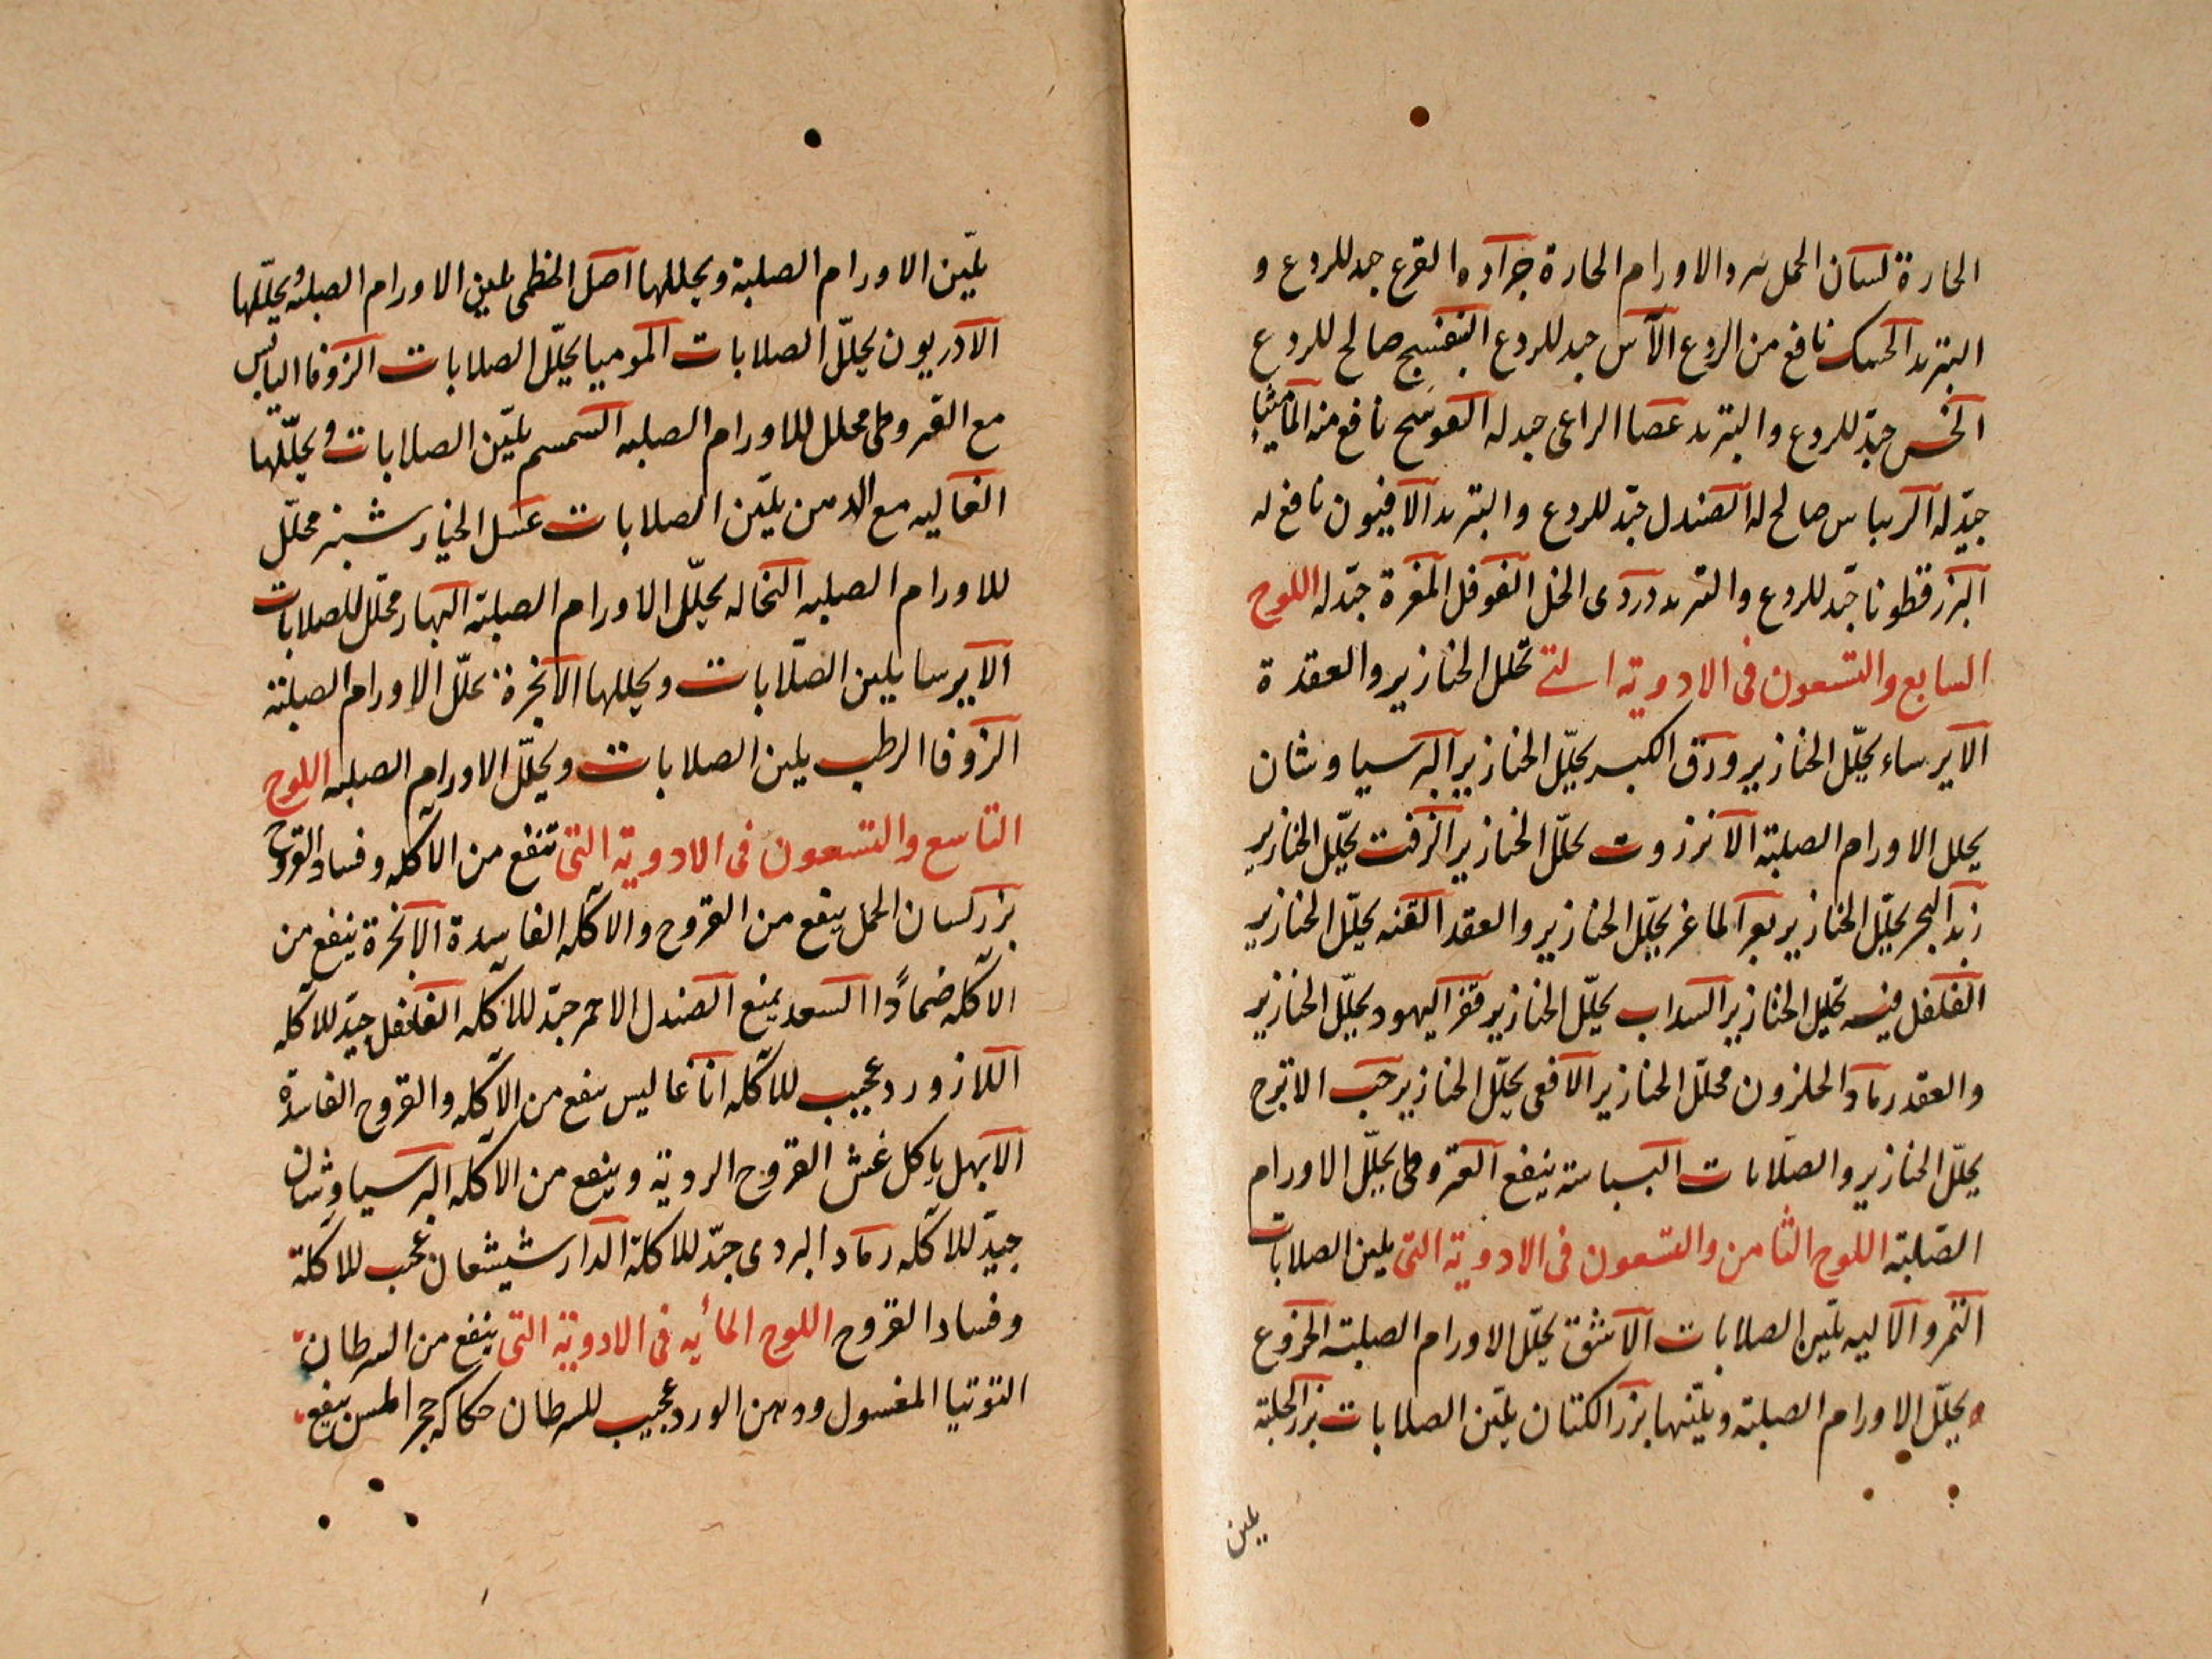 الحارة لسان الحمل والاورام الحارة جراده القرع جيد للردع و
التبريد الحسك نافع من الردع الآس جيد للردع البنفسج صالح للردع
الخس جيّد للردع والتبريد عصا الراعى جيد له العوسج نافع منه الماميثا
جيّد له الريباس صالح له الصندل جيّد للردع والتبريد الافيون نافع له
البزرقطونا جيّد للردع والتبريد دردى الخل الفوفل المغرة جيّد له اللوح
السابع والتسعون فى الادوية التى تحلل الخنازير والعقدة
الايرساء يحلّل الخنازير ورق الكبر يحلّل الخنازير البرسياوشان
يحلل الاورام الصلبة الانزروت يحلّل الخنازير الزفت يحلّل الخنازير
زبد البحر يحلّل الخنازير بعر الماعز يحلّل الخنازير والعقد القنه يحلّل الخنازير
الفلفل فيه تحليل الخنازير السداب يحلّل الخنازير قفر اليهود يحلّل الخنازير
والعقد رماد الحلزون محلّل الخنازير الافعى يحلّل الخنازير حب الاترج
يحلّل الخنازير والصلابات البسباسة ينفع القيروطى يحلّل الاورام
الصّلبة اللوح الثامن والتسعون فى الادوية التى يلين الصلابات
التمر والاليه يليّن الصلابات الاشق يحلّل الاورام الصلبة الخروع
يحلّل الاورام الصلبة ويليّنها بزر الكتان يليّن الصلابات بزر الحلبة
يلين
يليّن الاورام الصلبة ويحللها اصل الخطمى يلين الاورام الصلبة ويحلّلها
الآذريون يحلّل الصلابات الموميا يحلّل الصلابات الزوفا اليابس
مع القيروطى محلل للاورام الصلبه السمسم يليّن الصلابات ويحلّلها
الغاليه مع الادهن يليّن الصلابات عسل الخيارشنبر محلّل
للاورام الصلبه النخاله يحلّل الاورام الصلبة البهار محلّل للصلابات
الايرسا يلين الصّلابات ويحللها الانجرة يحلّل الاورام الصلبة
الزوفا الرطب يلين الصلابات ويحلّل الاورام الصلبه اللوح
التاسع والتسعون فى الادوية التى تنفع من الآكله وفساد القروح
بزر لسان الحمل ينفع من القروح والآكله الفاسدة الانجرة ينفع من
الآكله ضمادًا السعد يمنع الصندل الاحمر جيّد للآكله الفلفل جيّد للآكله
اللازورد عجيب للآكله اناغاليس ينفع من الآكله والقروح الفاسدة
الابهل يأكل غش القروح الردية وينفع من الآكله البرسياوشان
جيّد للآكله رماد البردى جيّد للاكلة الدارشيشعان عجب للاكلة
وفساد القروح اللوح المائيه فى الادوية التى ينفع من السرطان
التوتيا المغسول ودهن الورد عجيب للسرطان حكاكه حجر المسن ينفع